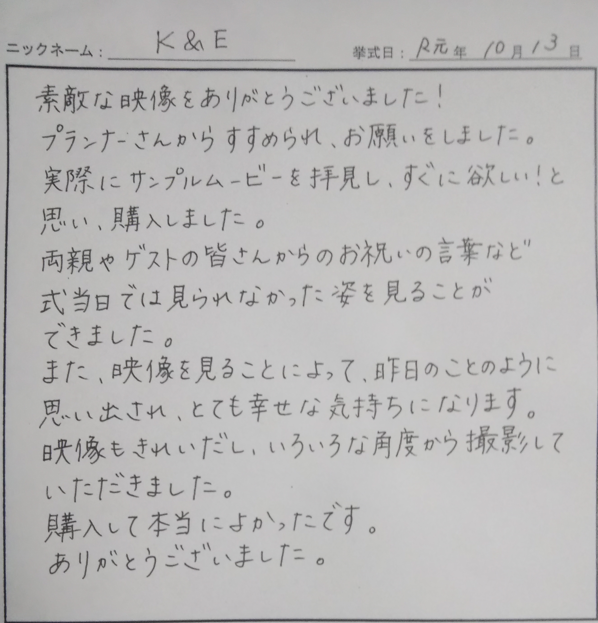 ニックネーム： K & E 挙式日： R元 年 10 月 13 日
素敵な映像をありがとうございました！
プランナーさんからすすめられ、お願いをしました。
実際にサンプルムービーを拝見し、すぐに欲しい！と
思い、購入しました。
両親やゲストの皆さんからのお祝いの言葉など
式当日では見られなかった姿を見ることが
できました。
また、映像を見ることによって、昨日のことのように
思い出され、とても幸せな気持ちになります。
映像もきれいだし、いろいろな角度から撮影して
いただきました。
購入して本当によかったです。
ありがとうございました。